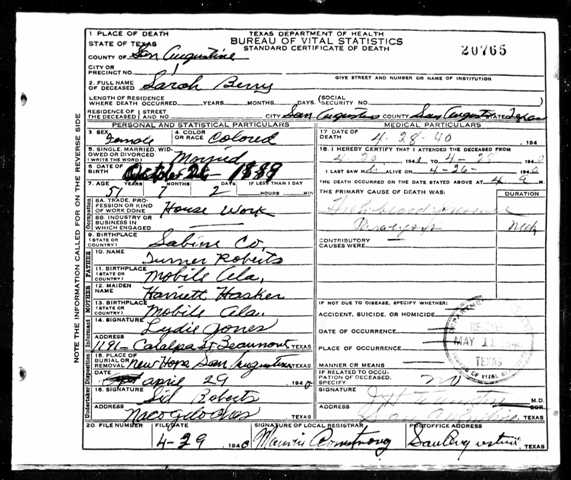 TEXAS DEPARTMENT OF HEALTH
BUREAU OF VITAL STATISTICS
STANDARD CERTIFICATE OF DEATH
20765
1 PLACE OF DEATH
STATE OF TEXAS
COUNTY OF San Augustine
CITY OR
PRECINCT NO. 1
GIVE STREET AND NUMBER OR NAME OF INSTITUTION
2. FULL NAME
OF DECEASED Sarah Berry
LENGTH OF RESIDENCE
WHERE DEATH OCCURRED YEARS MONTHS DAYS (SOCIAL SECURITY NO.
RESIDENCE OF THE DECEASED STREET NO. CITY San Augustine COUNTY San Augustine STATE Texas
PERSONAL AND STATISTICAL PARTICULARS
3. SEX Female 4. COLOR OR RACE Colored
5. SINGLE, MARRIED, WIDOWED OR DIVORCED (WRITE THE WORD) Married
6. DATE OF BIRTH October 26 - 1888
7. AGE YEARS MONTHS DAYS IF LESS THAN 1 DAY
51 7 2 HOURS MIN
8A. TRADE, PROFESSION OR KIND OF WORK DONE House Work
8B. INDUSTRY OR BUSINESS IN WHICH ENGAGED
9. BIRTHPLACE (STATE OR COUNTRY) Sabine Co,
10. NAME Turner Roberts
11. BIRTHPLACE (STATE OR COUNTRY) Mobile Ala,
12. MAIDEN NAME Harriett
13. BIRTHPLACE (STATE OR COUNTRY) Mobile Ala.
14. SIGNATURE Lydie Jones
ADDRESS 1191 - Catalpa St Beaumont TEXAS
15. PLACE OF BURIAL OR REMOVAL New Hope San Augustine TEXAS
DATE april 29 1940
16. SIGNATURE Roberts
ADDRESS Nacogdoches TEXAS
MEDICAL PARTICULARS
17 DATE OF DEATH 4-28-40, 194
18. I HEREBY CERTIFY THAT I ATTENDED THE DECEASED FROM
194 TO 4-28 1940
I LAST SAW ALIVE ON 4-26- 1940
THE DEATH OCCURRED ON THE DATE STATED ABOVE AT 4 M.
THE PRIMARY CAUSE OF DEATH WAS: DURATION
CONTRIBUTORY CAUSES WERE:
IF NOT DUE TO DISEASE, SPECIFY WHETHER:
ACCIDENT, SUICIDE, OR HOMICIDE
DATE OF OCCURRENCE
PLACE OF OCCURRENCE
MANNER OR MEANS
IF RELATED TO OCCUPATION OF DECEASED, SPECIFY
MAY 1
TEXAS
SIGNATURE M.D.
ADDRESS San Augustine TEXAS
20. FILE NUMBER FILE DATE SIGNATURE OF LOCAL REGISTRAR POSTOFFICE ADDRESS
4-29 1940 Armstrong San Augustine TEXAS
NOTE THE INFORMATION CALLED FOR ON THE REVERSE SIDE